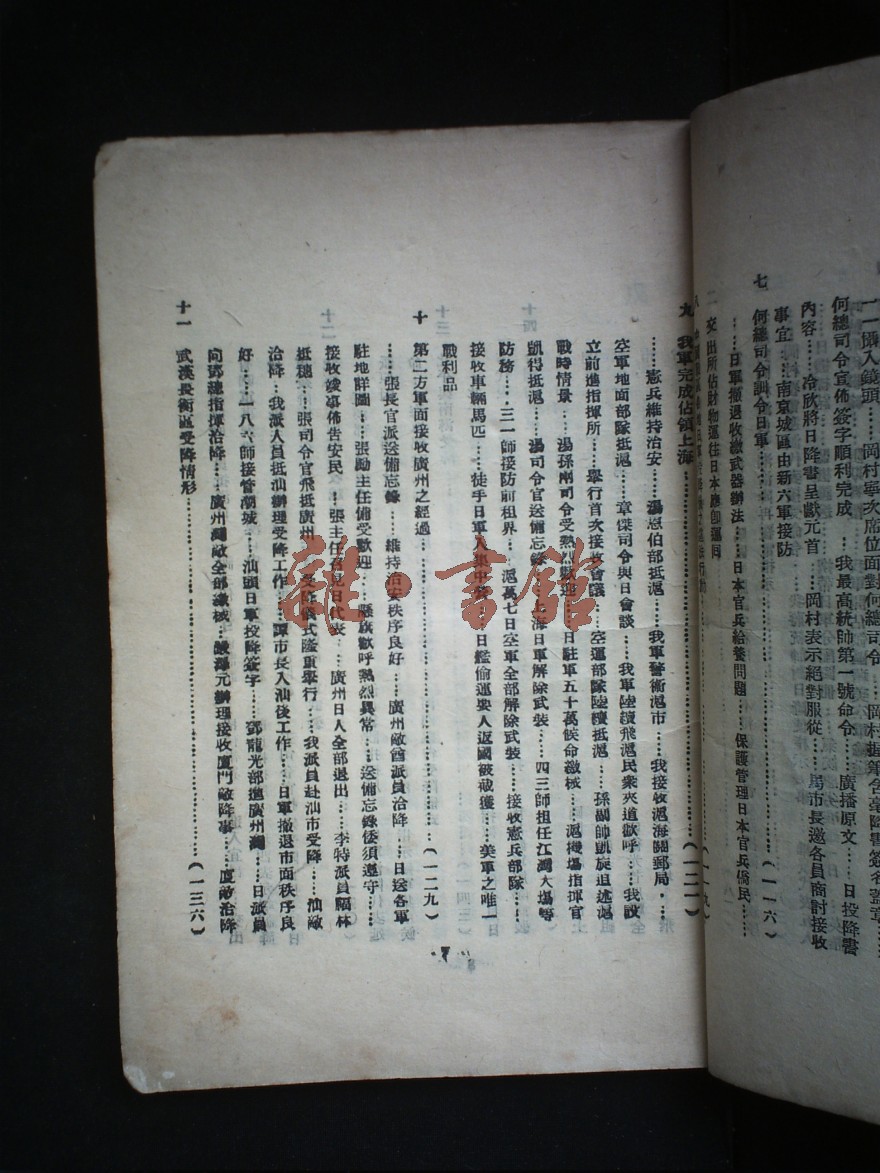 一一攝入鏡頭……岡村寧次席位面對何總司令……岡村握筆含毫降書簽名蓋章……
何總司令宣佈簽字順利完成……我最高統帥第一號命令……廣播原文……日投降書
內容……冷欣將日降書呈獻元首……岡村表示絕對服從……馬市長邀各員商討接收
事宜……南京城區由新六軍接防
七 何總司令訓令日軍……(一一六)
……日軍撤退收繳武器辦法……日本官兵給養問題……保護管理日本官兵僑民……
交出所佔財物運往日本應卽運回
九 我軍完成佔領上海……(一二一)
……憲兵維持治安……湯恩伯部抵滬……我軍警衛滬市……我接收滬海關郵局……
空軍地面部隊抵滬……章傑司令與日會談……我軍陸續飛滬民衆夾道歡呼……我設
立前進指揮所……舉行首次接收會議……空運部隊陸續抵滬……孫副帥凱旋追述滬
戰時情景……湯孫兩司令受熱烈歡迎……日駐軍五十萬候命繳械……滬機場指揮官
凱得抵滬……湯司令官送備忘錄……上海日軍解除武裝……四三師担任江灣大場等
防務……三一師接防前租界……滬萬七日空軍全部解除武裝……接收憲兵部隊……
接收車輛馬匹……徒手日軍入集中營……日艦偷運要人返國被截獲……美軍之唯一
戰利品
十 第二方軍面接收廣州之經過……(一二九)
……張長官派送備忘錄……維持治安秩序良好……廣州敵酋派員洽降……日送各軍
駐地詳圖……張勵主任備受歡迎……廣歡呼熱烈異常……送備忘錄倭須遵守……
接收竣事佈告安民……張主任召見日代表……廣州日人全部退出……李特派員福林
抵穗……張司令官飛抵廣州……受降儀式隆重舉行……我派員赴汕市受降……汕敵
洽降……我派人員抵汕辦理受降工作……譚市長入汕後工作……日軍撤退市面秩序良
好……一八六師接管潮城……汕頭日軍投降簽字……鄧龍光部進廣州灣……日派員
向鄧總指揮洽降……廣州灣敵全部繳械……嚴澤元辦理接收廈門敵降事……廈敵洽降
十一 武漢長衡區受降情形……(一三六)
7
雜·書館